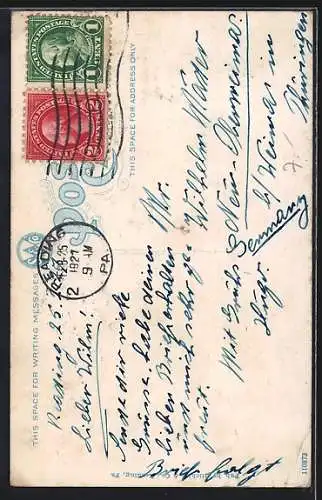 THIS SPACE FOR WRITING MESSAGES
THIS SPACE FOR ADDRESS ONLY
UNITED STATES POSTAGE
1 CENTS 1
UNITED STATES POSTAGE
2 CENTS 2
READING
2
1927
9 AM
PA.
Lieber Wilm!
Sende dir viele
Grüsse. Habe deinen
lieben Brief erhalten
und mich sehr ge-
freut.
Mit Gruß
Hugo.
Brief folgt
Mr.
Wilhelm
Neu-Oberweimar
b/ Weimar in
Thüringen
Germany
Reading, Pa.
110873